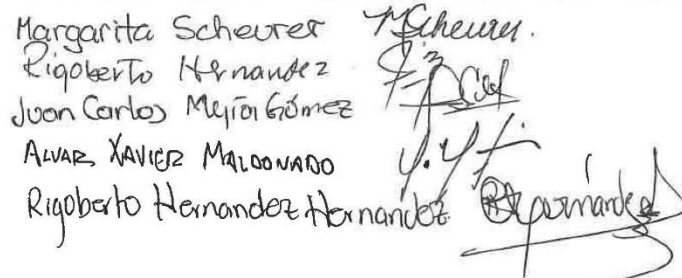 Margarita Scheurer MScheurer.
Rigoberto Hernandez
Juan Carlos Mejía Gómez
ALVAR XAVIER MALDONADO
Rigoberto Hernandez Hernandez